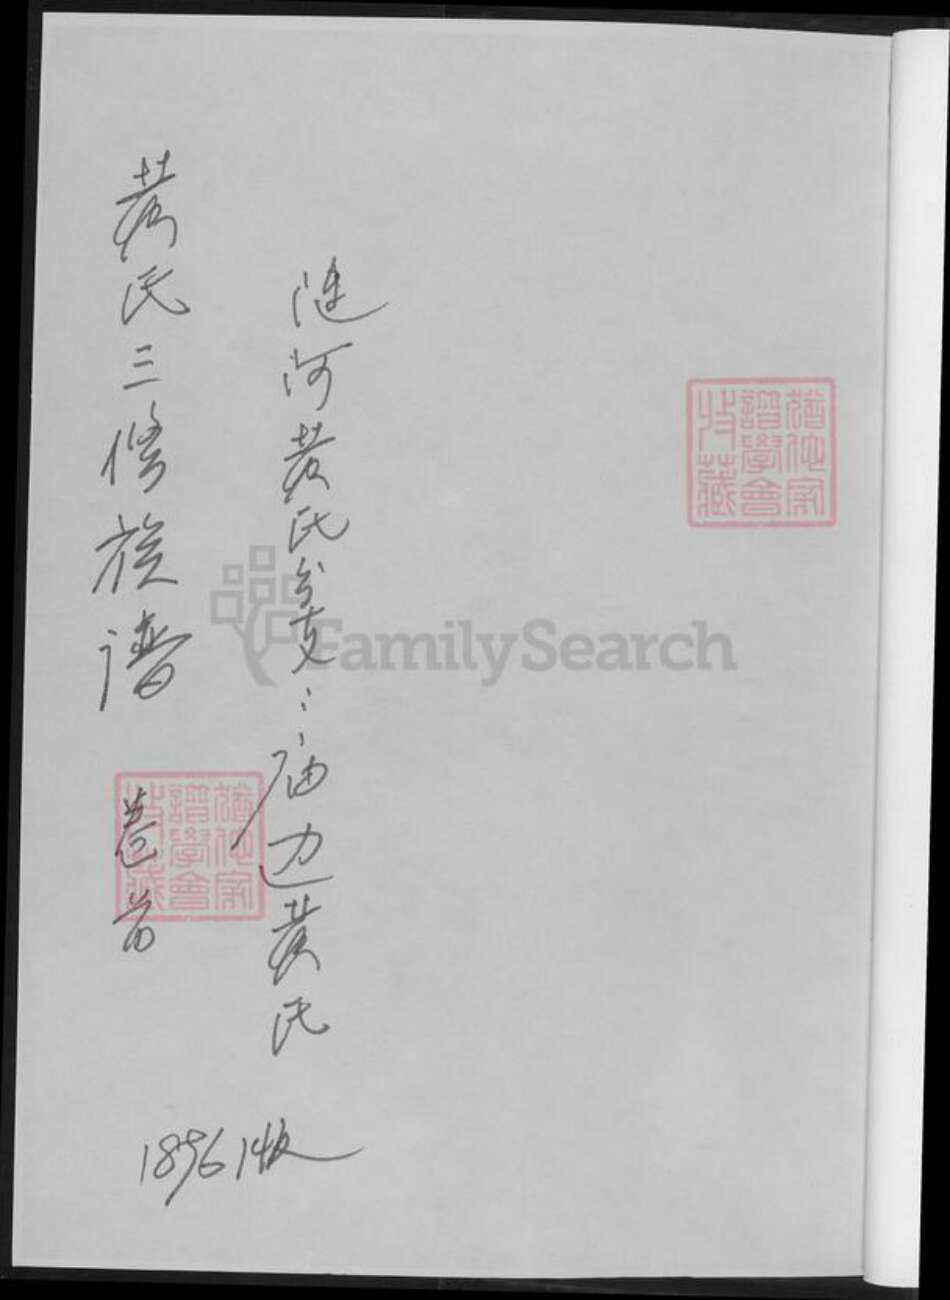 涟河黄氏分支：庙边黄氏
黄氏三修族谱 卷首
1896版
猶他家
譜學會
收藏
猶他家
譜學會
收藏
FamilySearch